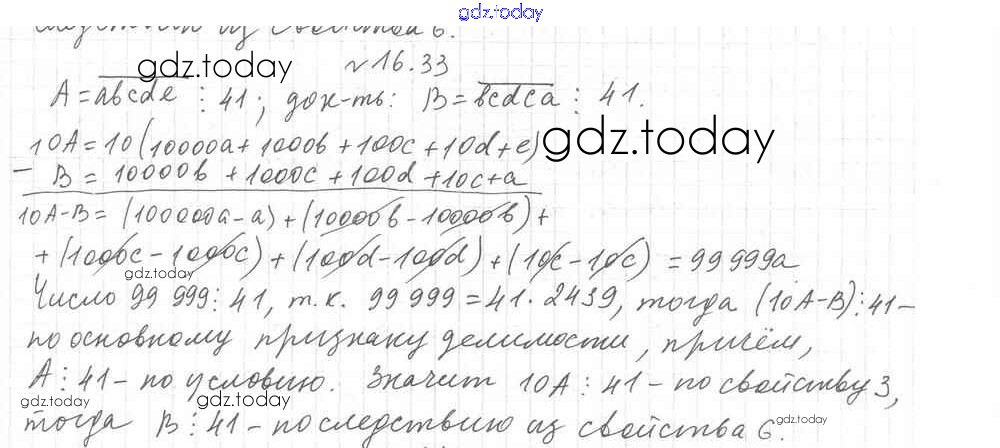 gdz.today
из свойства 6.
№16.33
gdz.today
A = abcde ⋮ 41; док-ть: B = bcdca ⋮ 41.
10A = 10(10000a + 1000b + 100c + 10d + e)
gdz.today
− B = 10000b + 1000c + 100d + 10c + a
10A − B = (100000a − a) + (10000b − 10000b) +
+ (1000c − 1000c) + (100d − 100d) + (10c − 10c) = 99 999a
gdz.today
Число 99 999 ⋮ 41, т.к. 99 999 = 41 · 2439, тогда (10A − B) ⋮ 41 –
по основному признаку делимости, причём,
A ⋮ 41 – по условию. Значит 10A ⋮ 41 – по свойству 3,
gdz.today gdz.today
тогда B ⋮ 41 – по следствию из свойства 6.
gdz.today